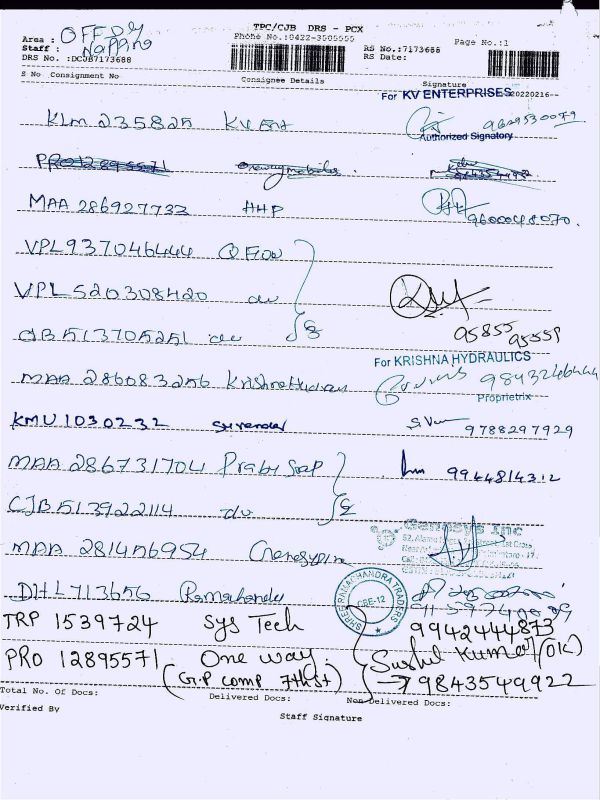 TPC/CJB DRS - PCX
Area : OFF DY
Phone No.:0422-3505555
Page No.:1
Staff : Nappino
RS No.:7173688
DRS No. :DCJB7173688
RS Date:
S No Consignment No Consignee Details Signature
For KV ENTERPRISES 20220216--
KLM 235825 KV Ent 9629530079
Authorized Signatory
PRO12895571
MAA 286927733 HHP 9600048070.
VPL937046444 Q Flow
VPL520308420 do
CJB513705251 do 2 95855 95559
For KRISHNA HYDRAULICS
MAA 286083256 9843246444
Proprietrix
KMU1030232 Surendar 9788297929
MAA 286731704 Prabu Soap 9944814312
CJB513922114 do 2
Genesys Inc
MAA 281456954
DHL713656
SHREE RAMACHANDRA TRADERS
CBE-12
TRP 1539724 Sys Tech 9942444873
PRO 12895571 One way Sushil Kumar (OK)
(G.P comp 7th st) 9843549922
Total No. Of Docs: Delivered Docs: Non Delivered Docs:
Verified By
Staff Signature